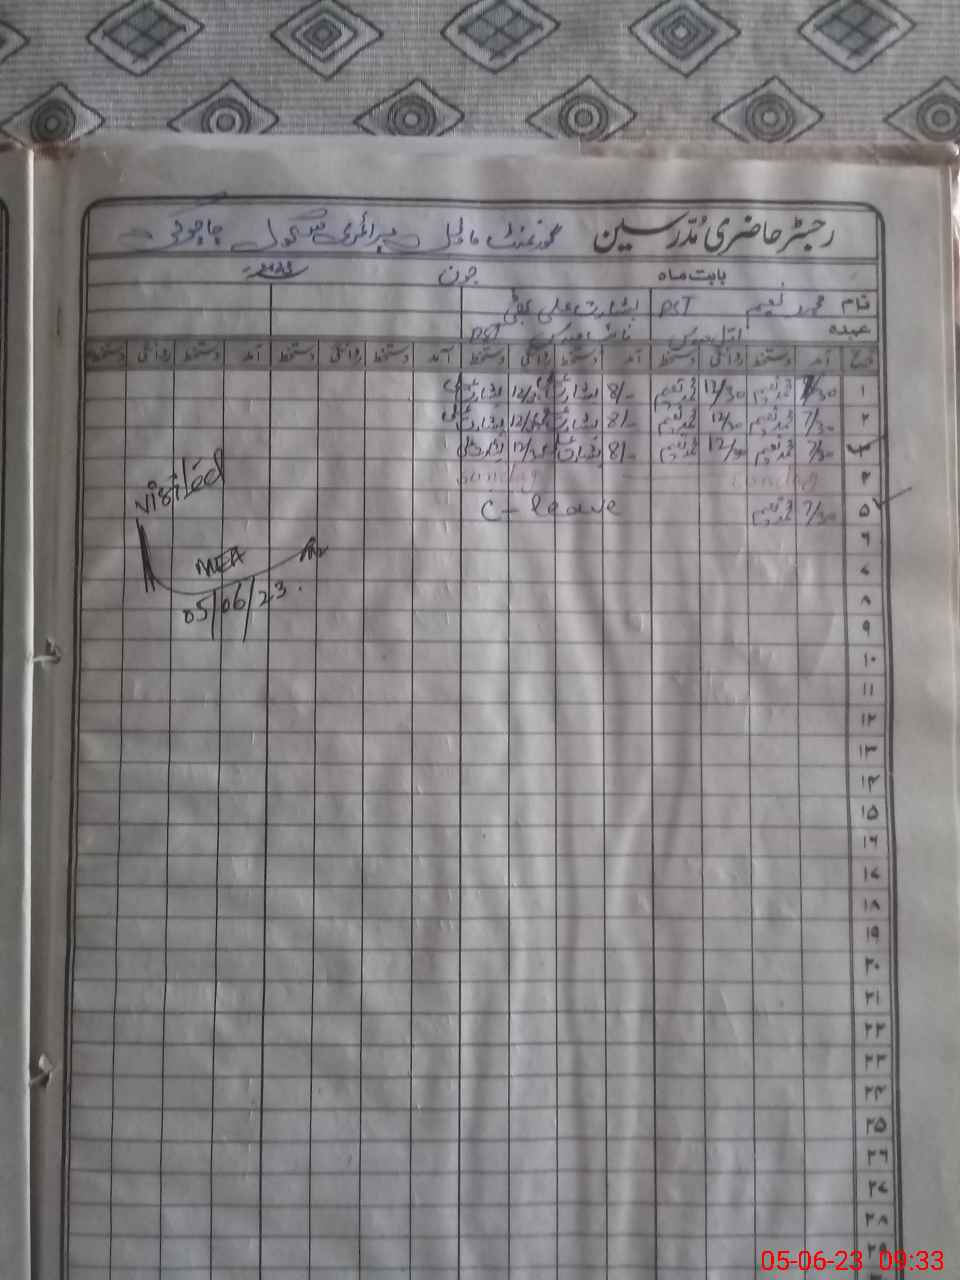 رجسٹر حاضری مدرسین گورنمنٹ ماڈل پرائمری سکول
بابت ماہ جون 2023
نام محمد نعیم PST بشارت علی
عہدہ PST
تاریخ آمد دستخط روانگی دستخط آمد دستخط روانگی دستخط آمد دستخط روانگی دستخط آمد دستخط روانگی دستخط
۱ 7/30 محمد نعیم 12/30 محمد نعیم 8/- بشارت علی بشارت علی
۲ 7/30 محمد نعیم 12/30 محمد نعیم 8/- بشارت علی بشارت علی
۳ 7/30 محمد نعیم 12/30 محمد نعیم 8/- بشارت علی بشارت علی
۴ Sunday Sunday
۵ 7/30 محمد نعیم C-leave
visited
MEA
05/06/23.
۶
۷
۸
۹
۱۰
۱۱
۱۲
۱۳
۱۴
۱۵
۱۶
۱۷
۱۸
۱۹
۲۰
۲۱
۲۲
۲۳
۲۴
۲۵
۲۶
۲۷
۲۸
۲۹
05-06-23 09:33